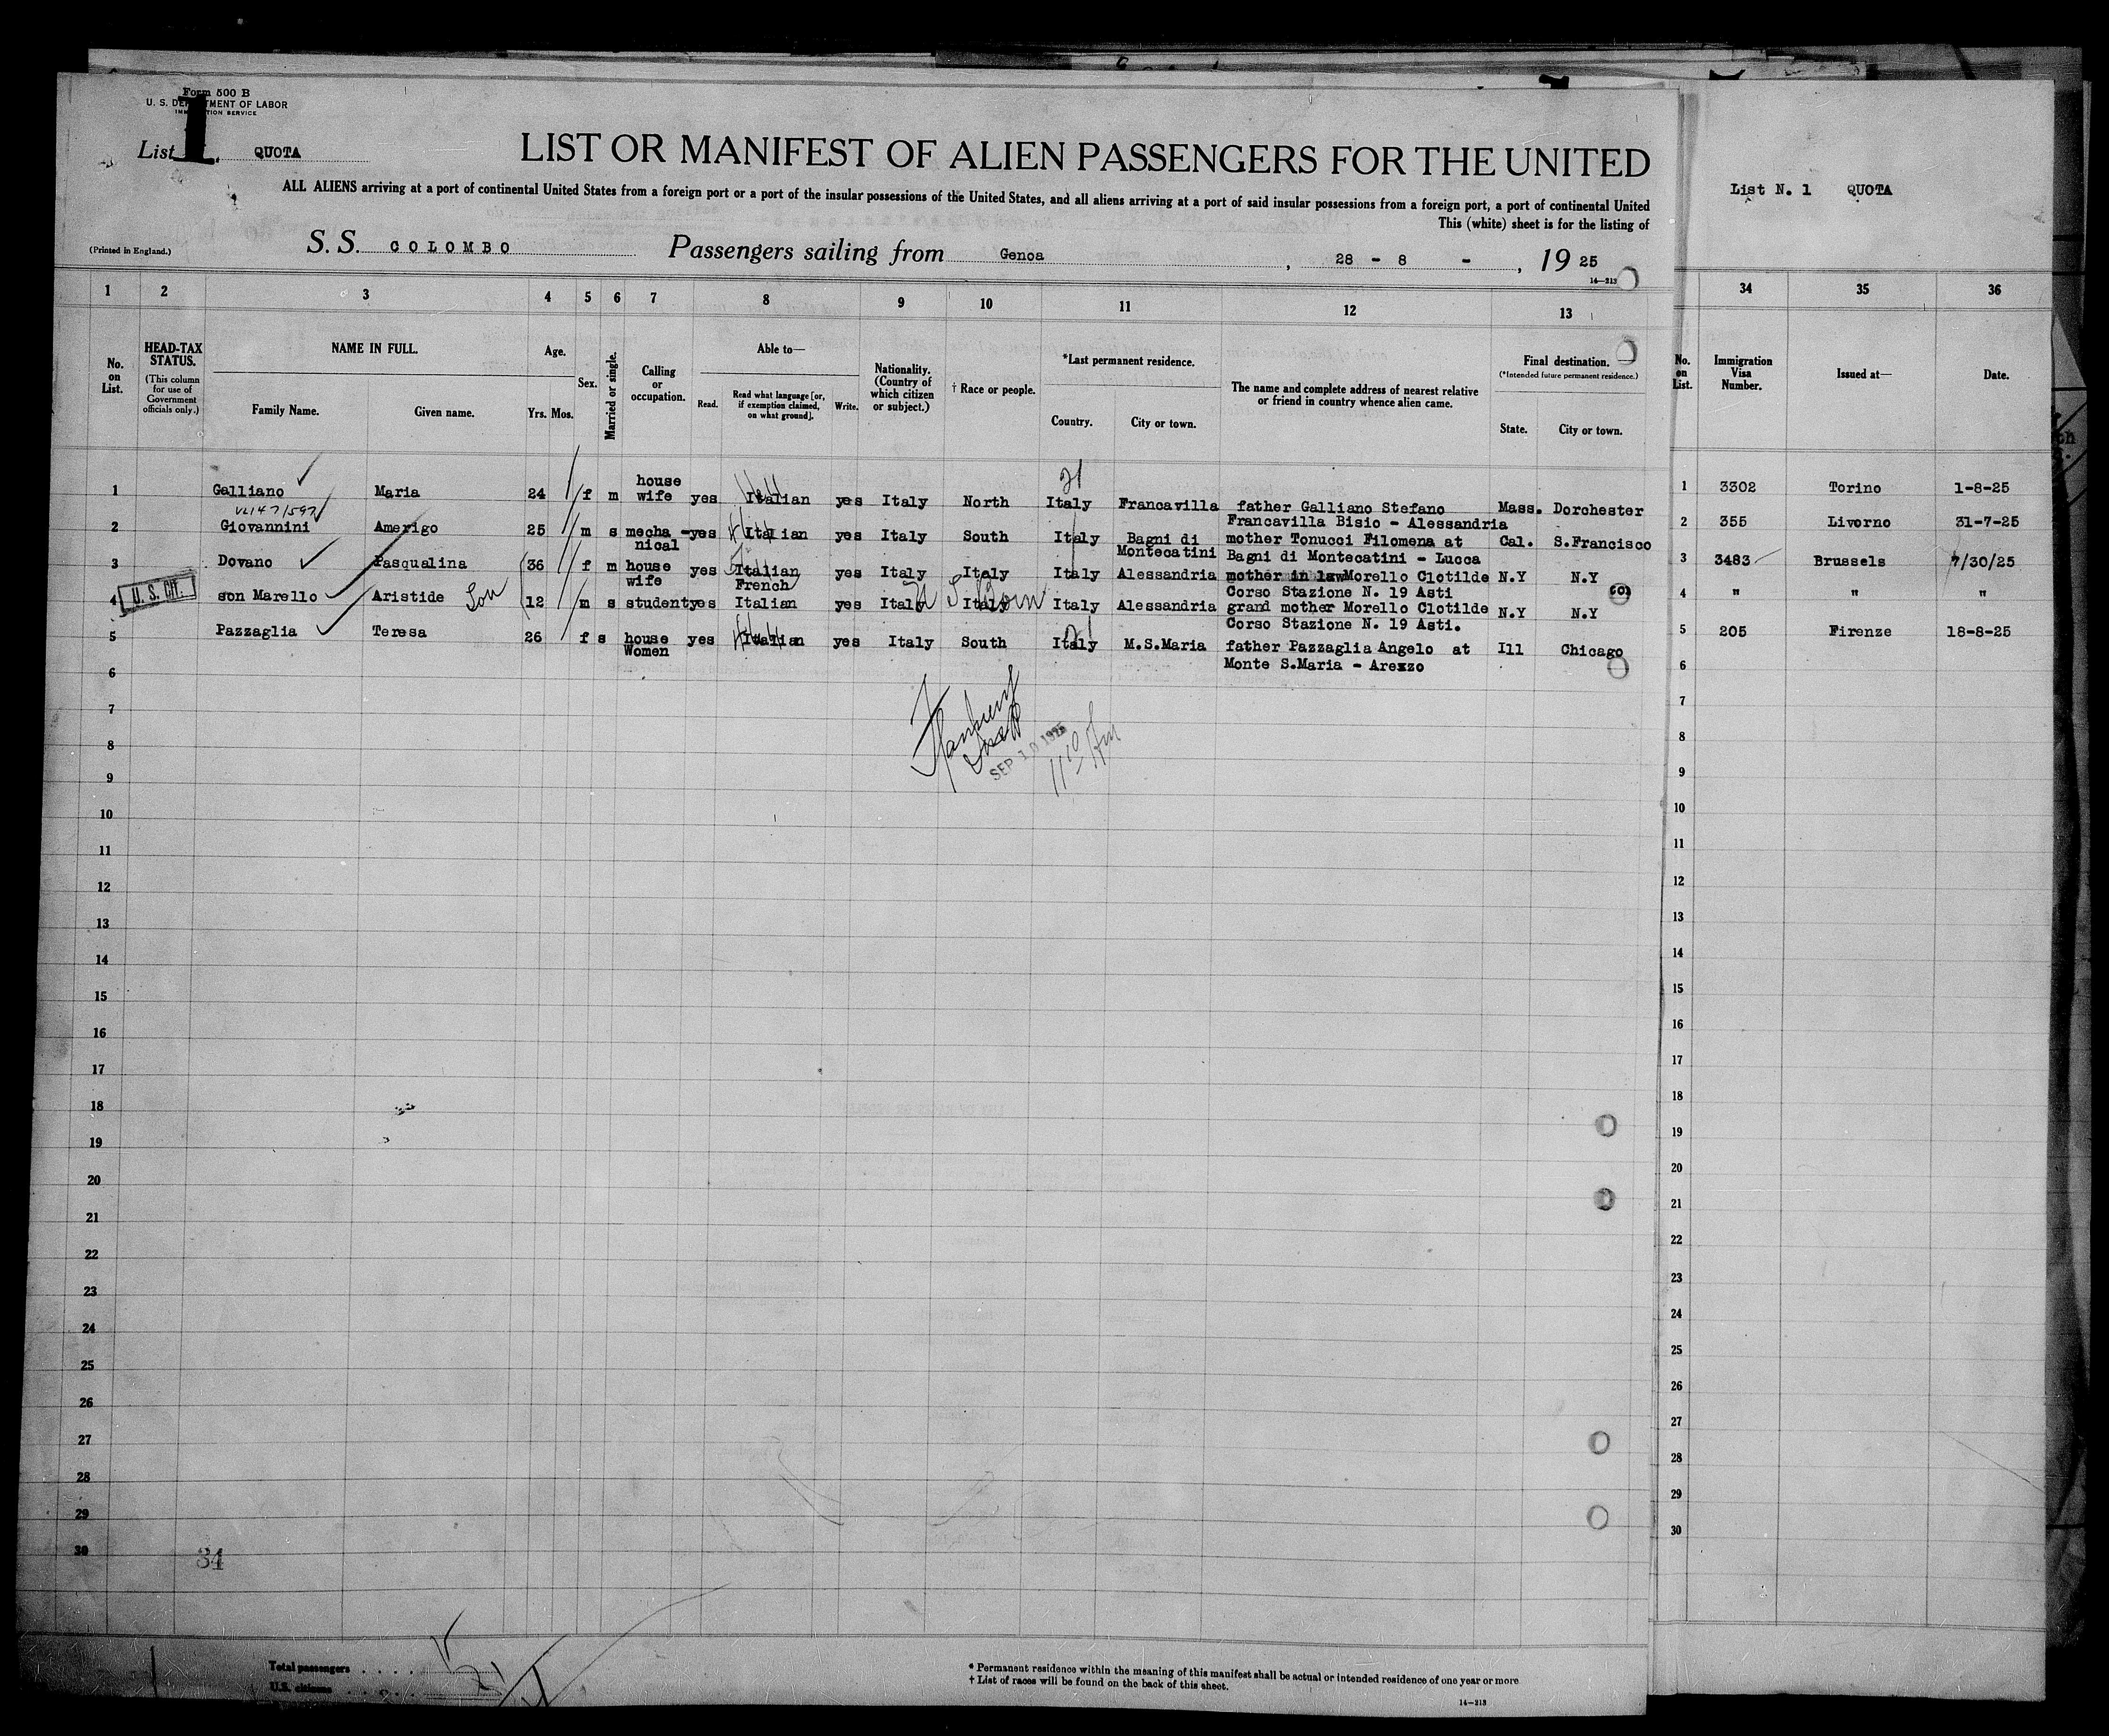 Form 500 B
U. S. DEPARTMENT OF LABOR
IMMIGRATION SERVICE
List 1. QUOTA
LIST OR MANIFEST OF ALIEN PASSENGERS FOR THE UNITED
ALL ALIENS arriving at a port of continental United States from a foreign port or a port of the insular possessions of the United States, and all aliens arriving at a port of said insular possessions from a foreign port, a port of continental United
This (white) sheet is for the listing of
(Printed in England.) S. S. COLOMBO Passengers sailing from Genoa, 28 - 8 - , 19 25
14—213
List N. 1 QUOTA
1 2 3 4 5 6 7 8 9 10 11 12 13 34 35 36
No. on List.
HEAD-TAX STATUS.
(This column for use of Government officials only.)
NAME IN FULL.
Family Name. Given name.
Age.
Yrs. Mos.
Sex.
Married or single.
Calling or occupation.
Able to—
Read. Read what language [or, if exemption claimed, on what ground]. Write.
Nationality. (Country of which citizen or subject.)
† Race or people.
*Last permanent residence.
Country. City or town.
The name and complete address of nearest relative or friend in country whence alien came.
Final destination.
(*Intended future permanent residence.)
State. City or town.
No. on List.
Immigration Visa Number.
Issued at—
Date.
1 Galliano Maria 24 f m house wife yes Italian yes Italy North 21 Italy Francavilla father Galliano Stefano Francavilla Bisio - Alessandria Mass. Dorchester 1 3302 Torino 1-8-25
2 Giovannini Amerigo 25 m s mecha - nical yes Italian yes Italy South Italy Bagni di Montecatini mother Tonucci Filomena at Bagni di Montecatini - Lucca Cal. S.Francisco 2 355 Livorno 31-7-25
3 Dovano Pasqualina 36 f m house wife yes Italian French yes Italy Italy Italy Alessandria mother in law Morello Clotilde Corso Stazione N. 19 Asti N.Y N.Y 3 3483 Brussels 7/30/25
U. S. CIT.
4 son Marello Aristide Son 12 m s student yes Italian yes Italy Italy U S Born Italy Alessandria grand mother Morello Clotilde Corso Stazione N. 19 Asti. N.Y N.Y 4 " " "
5 Pazzaglia Teresa 26 f s house Women yes Italian yes Italy South 21 Italy M.S.Maria father Pazzaglia Angelo at Monte S.Maria - Arezzo Ill Chicago 5 205 Firenze 18-8-25
6 6
7 7
8 SEP 10 1925 8
9 9
10 10
11 11
12 12
13 13
14 14
15 15
16 16
17 17
18 18
19 19
20 20
21 21
22 22
23 23
24 24
25 25
26 26
27 27
28 28
29 29
30 30
34
Total passengers
U.S. citizens
* Permanent residence within the meaning of this manifest shall be actual or intended residence of one year or more
† List of races will be found on the back of this sheet.
14—213